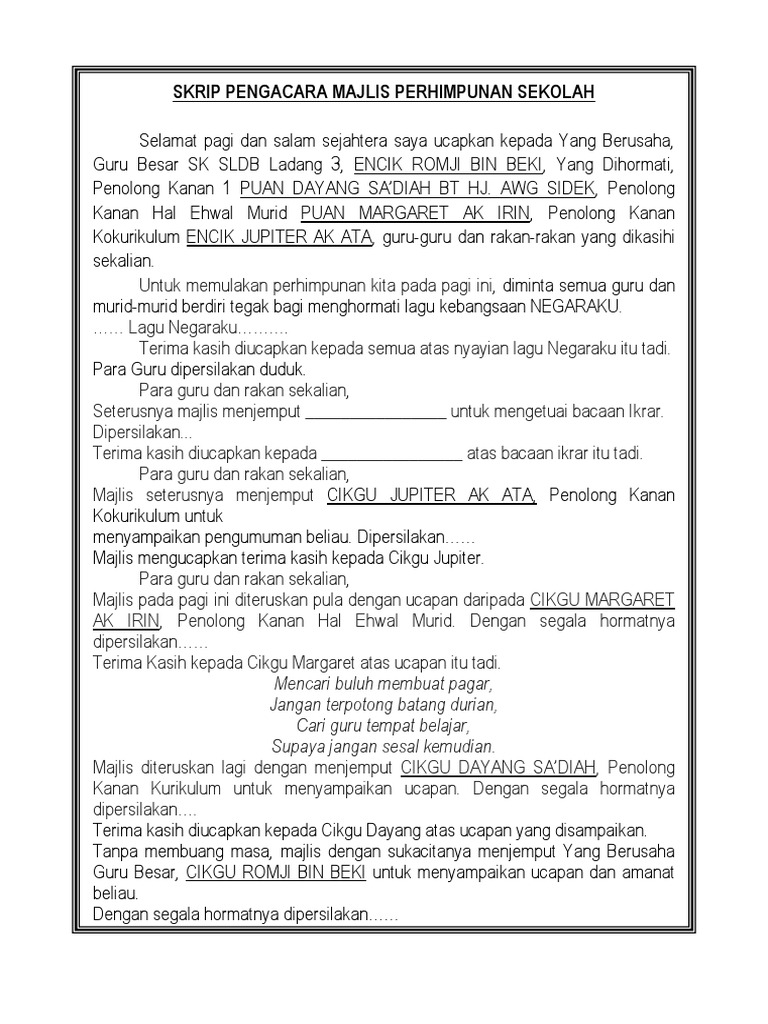 SKRIP PENGACARA MAJLIS PERHIMPUNAN SEKOLAH
Selamat pagi dan salam sejahtera saya ucapkan kepada Yang Berusaha,
Guru Besar SK SLDB Ladang 3, ENCIK ROMJI BIN BEKI, Yang Dihormati,
Penolong Kanan 1 PUAN DAYANG SA’DIAH BT HJ. AWG SIDEK, Penolong
Kanan Hal Ehwal Murid PUAN MARGARET AK IRIN, Penolong Kanan
Kokurikulum ENCIK JUPITER AK ATA, guru-guru dan rakan-rakan yang dikasihi
sekalian.
Untuk memulakan perhimpunan kita pada pagi ini, diminta semua guru dan
murid-murid berdiri tegak bagi menghormati lagu kebangsaan NEGARAKU.
…… Lagu Negaraku……….
Terima kasih diucapkan kepada semua atas nyayian lagu Negaraku itu tadi.
Para Guru dipersilakan duduk.
Para guru dan rakan sekalian,
Seterusnya majlis menjemput ________________ untuk mengetuai bacaan Ikrar.
Dipersilakan...
Terima kasih diucapkan kepada ________________ atas bacaan ikrar itu tadi.
Para guru dan rakan sekalian,
Majlis seterusnya menjemput CIKGU JUPITER AK ATA, Penolong Kanan
Kokurikulum untuk
menyampaikan pengumuman beliau. Dipersilakan……
Majlis mengucapkan terima kasih kepada Cikgu Jupiter.
Para guru dan rakan sekalian,
Majlis pada pagi ini diteruskan pula dengan ucapan daripada CIKGU MARGARET
AK IRIN, Penolong Kanan Hal Ehwal Murid. Dengan segala hormatnya
dipersilakan……
Terima Kasih kepada Cikgu Margaret atas ucapan itu tadi.
Mencari buluh membuat pagar,
Jangan terpotong batang durian,
Cari guru tempat belajar,
Supaya jangan sesal kemudian.
Majlis diteruskan lagi dengan menjemput CIKGU DAYANG SA’DIAH, Penolong
Kanan Kurikulum untuk menyampaikan ucapan. Dengan segala hormatnya
dipersilakan….
Terima kasih diucapkan kepada Cikgu Dayang atas ucapan yang disampaikan.
Tanpa membuang masa, majlis dengan sukacitanya menjemput Yang Berusaha
Guru Besar, CIKGU ROMJI BIN BEKI untuk menyampaikan ucapan dan amanat
beliau.
Dengan segala hormatnya dipersilakan……